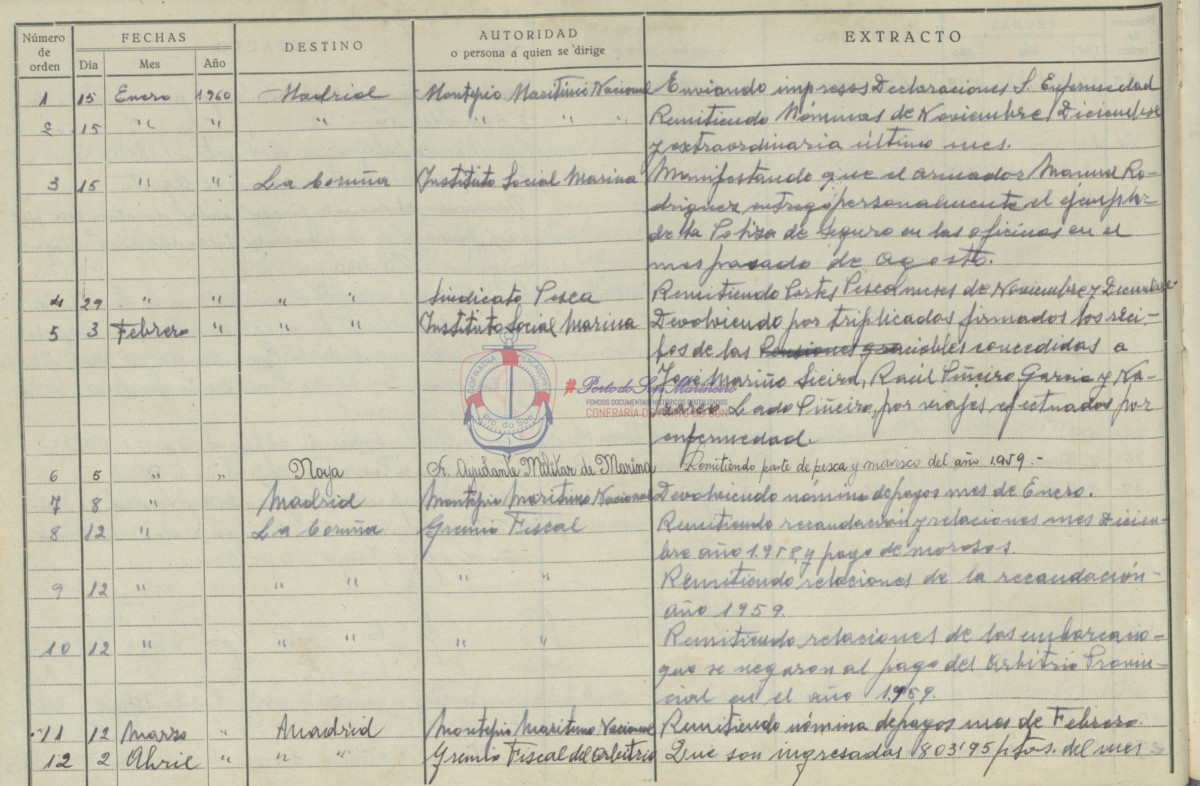 Número de orden FECHAS DESTINO AUTORIDAD o persona a quien se dirige EXTRACTO
Día Mes Año
1 15 Enero 1960 Madrid Montepio Maritimo Nacional Enviando impresos Declaraciones S. Enfermedad
2 15 " " " " " " Remitiendo Nóminas de Noviembre, Diciembre
y extraordinaria último mes.
3 15 " " La Coruña Instituto Social Marina Manifestando que el armador Manuel Ro-
driguez entregó personalmente el ejemplar
de la Poliza de Seguro en las oficinas en el
mes pasado de Agosto.
4 29 " " " " Sindicato Pesca Remitiendo Partes Pesca meses de Noviembre y Diciembre
5 3 Febrero " " " Instituto Social Marina Devolviendo por triplicados firmados los reci-
bos de las Pensiones graciables concedidas a
José Mariño Sieira, Raúl Piñeiro Garcia y Na-
Lado Piñeiro, por viajes efectuados por
enfermedad.
6 5 " " Noya Sr. Ayudante Militar de Marina Remitiendo parte de pesca y marisco del año 1.959.-
7 8 " Madrid Montepio Maritimo Nacional Devolviendo nómina de pagos mes de Enero.
8 12 " La Coruña Gremio Fiscal Remitiendo recaudación y relaciones mes Diciem-
bre año 1.958, y pago de morosos.
9 12 " " " " " Remitiendo relaciones de la recaudación-
año 1959.
10 12 " " " " " Remitiendo relaciones de las embarcacio-
que se negaron al pago del Arbitrio Provin-
cial en el año 1.959.
11 12 Marzo " Madrid Montepio Maritimo Nacional Remitiendo nómina de pagos mes de Febrero.
12 2 Abril " " " Gremio Fiscal del Arbitrio Que son ingresadas 803'95 ptas. del mes
COFRADIA PESCADORES
Pto. do Son
# Porto do Son Mariñeiro
FONDOS DOCUMENTAIS HISTÓRICOS DIXITALIZADOS
CONFRARÍA DE PORTO DO SON